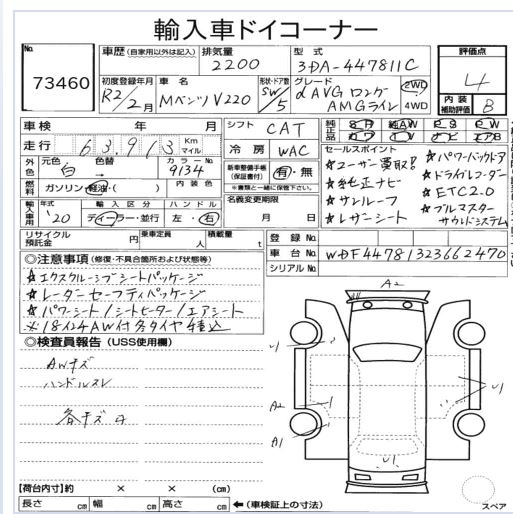 輸入車ドイコーナー
No. 73460
車歴 (自家用以外は記入)
排気量 2200
型式 3DA-447811C
評価点 4
初度登録年月 R2/2月
車名 MベンツV220
形状・ドア数 SW/5
グレード dAVG ロング AMGライン
2WD 4WD
内装補助評価 B
車検 年 月
シフト CAT
純正部品 SR 純AW PS PW
カワ ナビ エアB
走行 63913 Km マイル
冷房 WAC
セールスポイント
★ユーザー買取!
★純正ナビ
★サンルーフ
★レザーシート
★パワーバックドア
★ドライブレコーダー
★ETC2.0
★ブルメスターサウンドシステム
外色 元色 白 色替 → カラーNo. 9134
新車整備手帳(保証書付) 有・無
※書類と一緒に保管下さい。
燃料 ガソリン・軽油・( ) 内装色
名義変更期限 月 日
輸入車用 年式 '20 輸入区分 ディーラー・並行 ハンドル 左・右
リサイクル預託金 円 乗車定員 人 積載量 t
登録No.
車台No. WDF44781323662470
シリアルNo.
◎注意事項 (修復・不具合箇所および状態等)
★エクスクルーシブシートパッケージ
★レーダーセーフティパッケージ
★パワーシート/シートヒーター/エアシート
※18インチAW付冬タイヤ積込
◎検査員報告 (USS使用欄)
AWキズ
ハンドルスレ
各キズ
A2
U1
U1
A2
A1
U1
【荷台内寸】約 × × (cm)
長さ cm 幅 cm 高さ cm ←(車検証上の寸法)
スペア